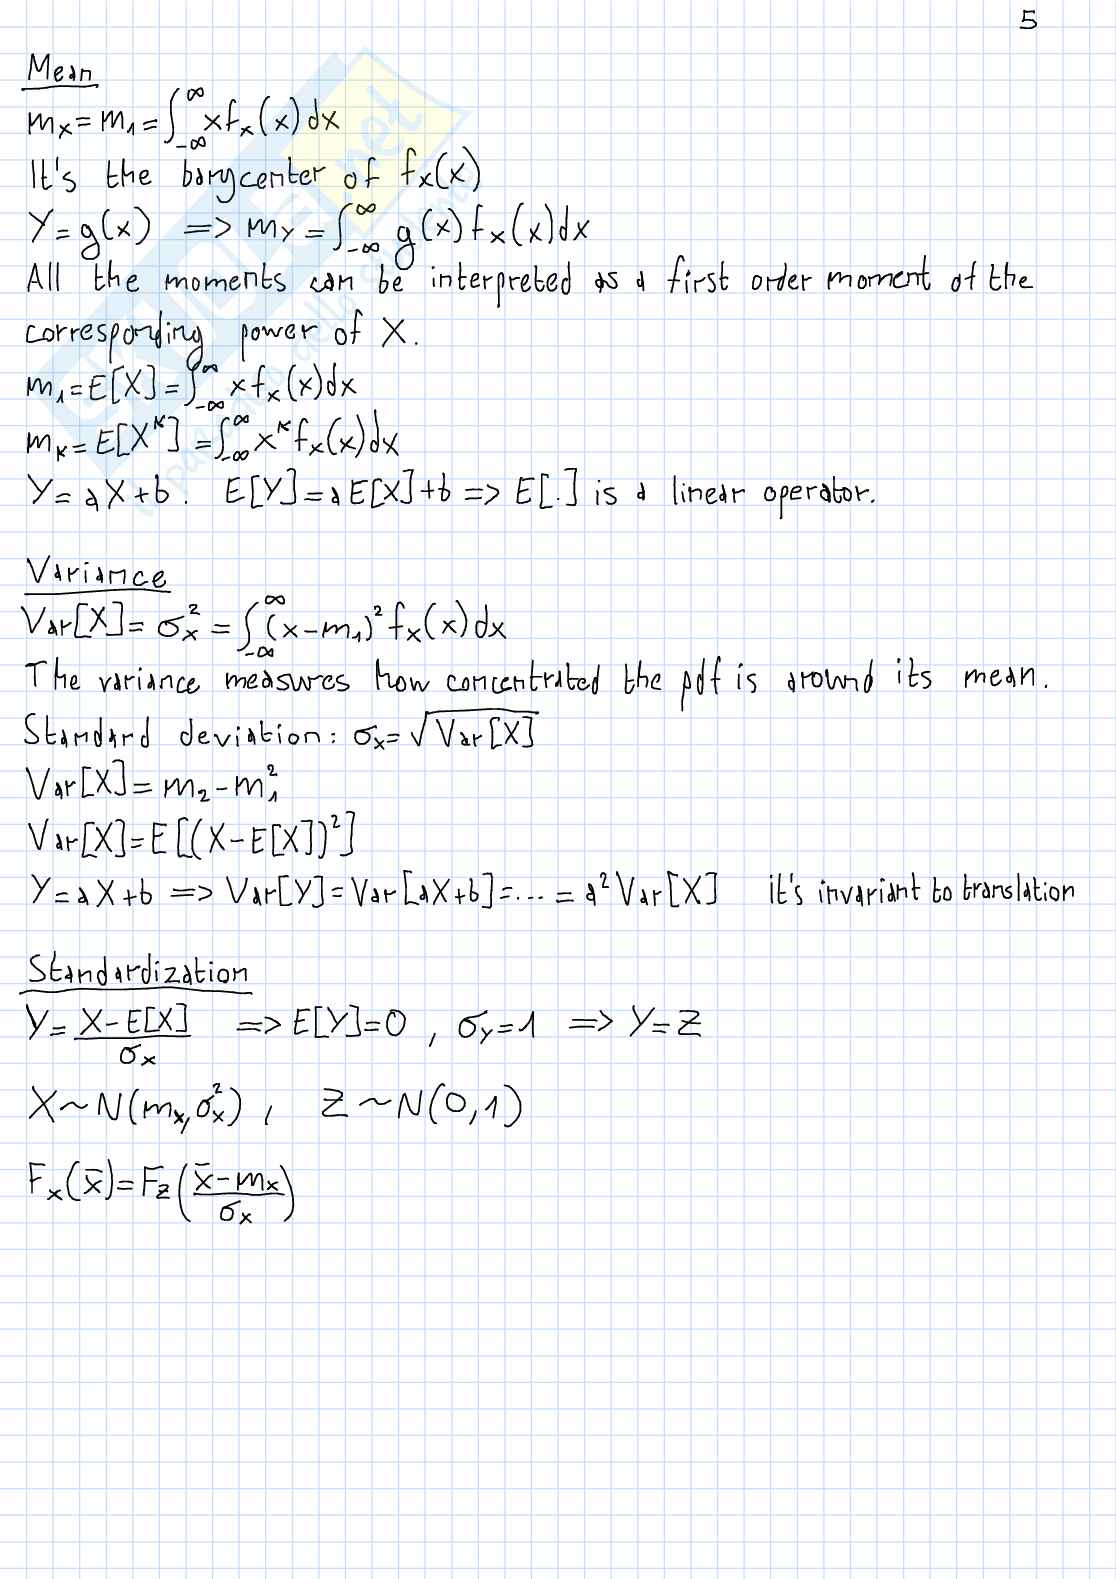 5
Mean
m_X = m_1 = ∫_{-∞}^{∞} x f_x(x) dx
It's the barycenter of f_x(x)
Y = g(x) => m_Y = ∫_{-∞}^{∞} g(x) f_x(x) dx
All the moments can be interpreted as a first order moment of the
corresponding power of X.
m_1 = E[X] = ∫_{-∞}^{∞} x f_x(x) dx
m_K = E[X^K] = ∫_{-∞}^{∞} x^K f_x(x) dx
Y = aX + b. E[Y] = a E[X] + b => E[.] is a linear operator.
Variance
Var[X] = σ_x^2 = ∫_{-∞}^{∞} (x - m_1)^2 f_x(x) dx
The variance measures how concentrated the pdf is around its mean.
Standard deviation: σ_x = √Var[X]
Var[X] = m_2 - m_1^2
Var[X] = E[(X - E[X])^2]
Y = aX + b => Var[Y] = Var[aX + b] = ... = a^2 Var[X] it's invariant to translation
Standardization
Y = (X - E[X]) / σ_x => E[Y] = 0 , σ_Y = 1 => Y = Z
X ~ N(m_x, σ_x^2) , Z ~ N(0, 1)
F_x(x̄) = F_Z((x̄ - m_x) / σ_x)